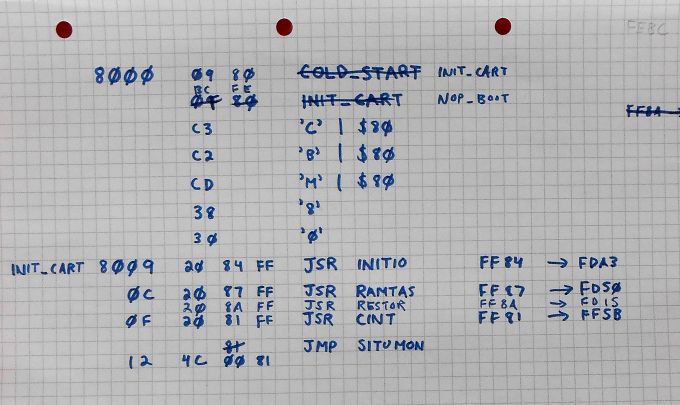 FEBC
8000 09 80 COLD_START INIT_CART
BC FE
0F 80 INIT_CART NOP_BOOT
FF8A →
C3 'C' | $80
C2 'B' | $80
CD 'M' | $80
38 '8'
30 '0'
INIT_CART 8009 20 84 FF JSR INITIO FF84 → FDA3
0C 20 87 FF JSR RAMTAS FF87 → FD50
20 8A FF JSR RESTOR FF8A → FD15
0F 20 81 FF JSR CINT FF81 → FF5B
81 JMP SITUMON
12 4C 00 81